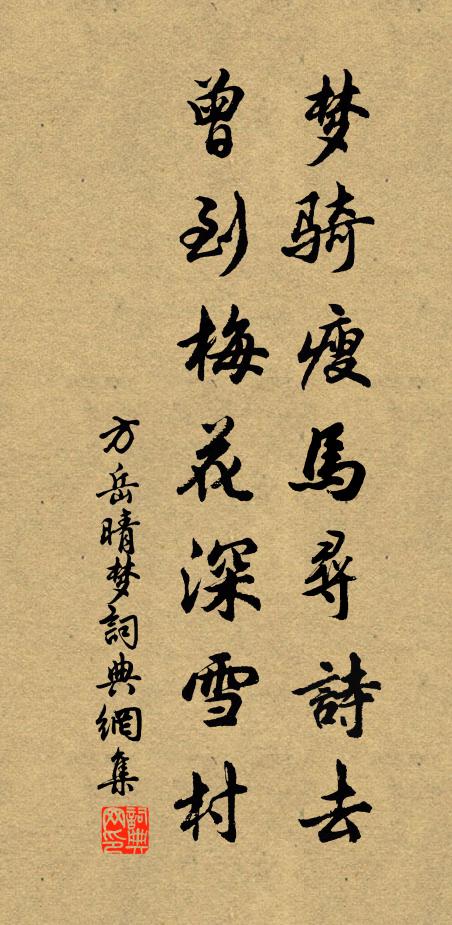 梦骑瘦馬尋詩去
曾到梅花深雪村
方岳晴梦詞典網集
詞典网印